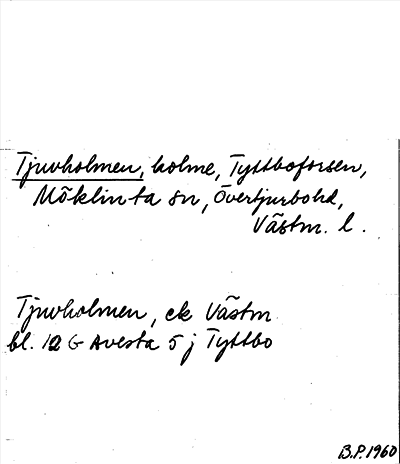 Tjuvholmen, holme, Tyttboforsen,
Möklinta sn, Övertjurbohd,
Västm. l.
Tjuvholmen, ek Västm
bl. 12 G Avesta 5 j Tyttbo
B.P. 1960